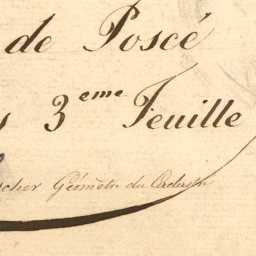 de Poscé
3eme Feuille
Géomètre du Cadastre